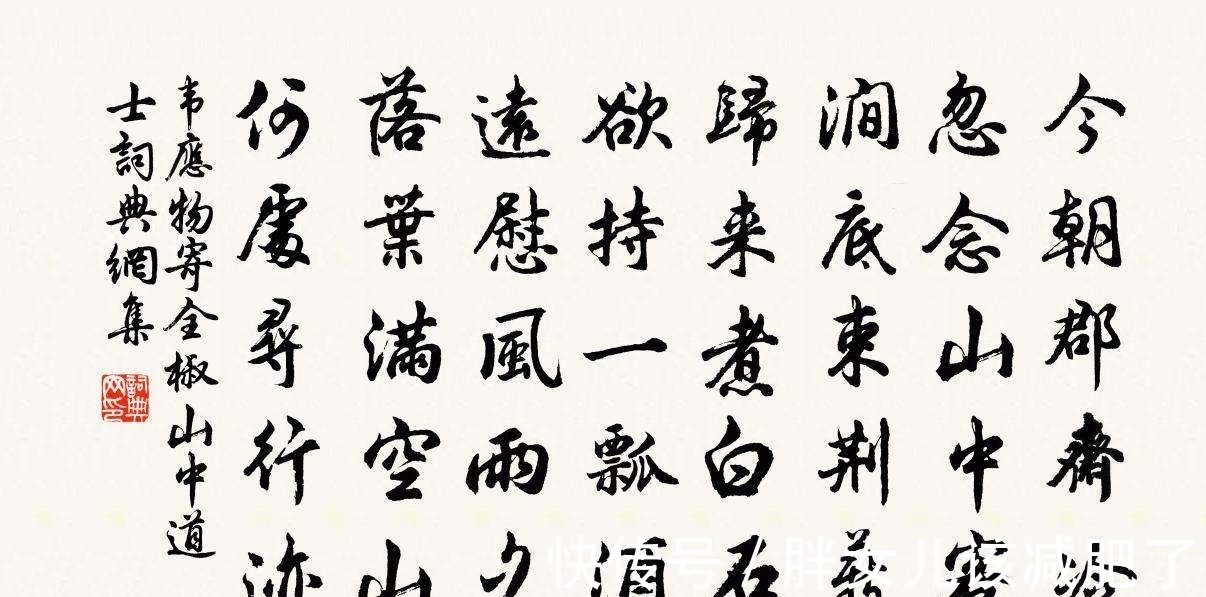 今朝郡齋冷
忽念山中客
澗底束荆薪
歸来煮白石
欲持一瓢酒
遠慰風雨夕
落葉滿空山
何處尋行迹
韦應物寄全椒山中道
士詞典網集
詞典網印
快传号/胖女儿该减肥了